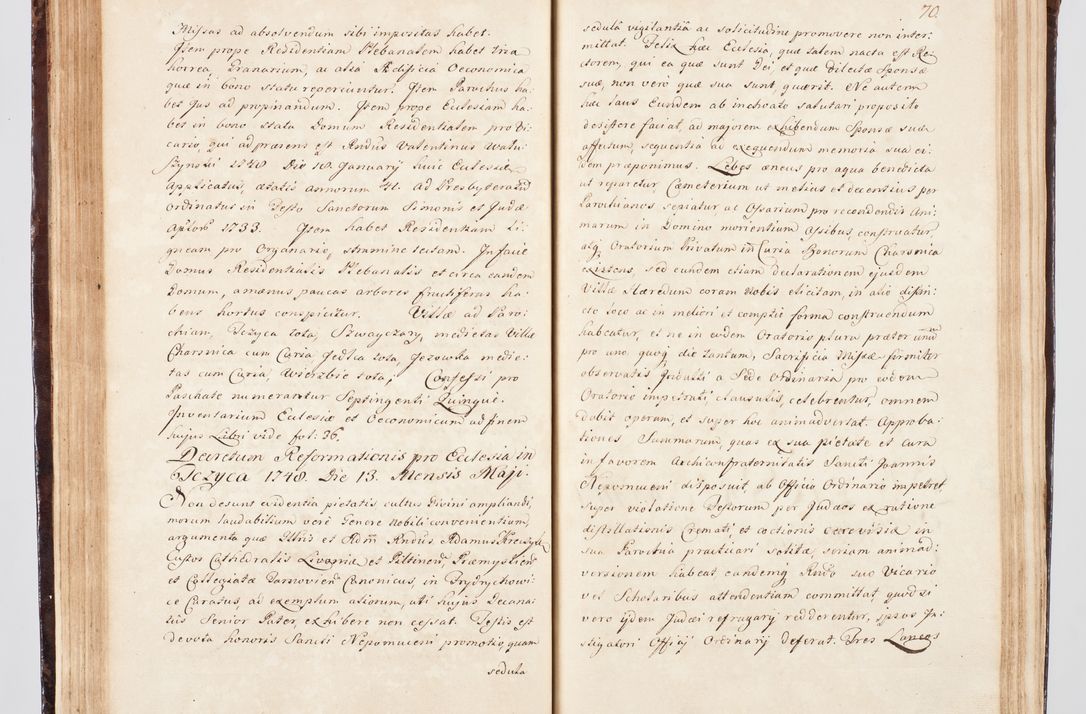 Missas ad absolvendum sibi impositas habet.
Item prope Residentiam Plebanalem habet tria
horrea, Granarium, ac alia Ædificia Oeconomica
quæ in bono statu reperiuntur. Item Parochus ha-
bet Jus ad propinandum. Item prope Ecclesiam ha-
bet in bono statu Domum Residentialem pro Vi-
cario, qui ad præsens est Rndus Valentinus Watu-
szynski 1748 Die 18 January huic Ecclesiæ
applicatus, ætatis annorum 41. ad Presbyteratū
ordinatus in Festo Sanctorum Simonis et Judæ
Aplōrō 1733. Item habet Residentiam Li-
gneam pro Organario, stramine tectam. In facie
Domus Residentialis Plebanalis et circa eandem
Domum, amænus paucas arbores fructiferas ha-
bens hortus conspicitur. Villæ ad Paro-
chiam, Tczyca tota, Szwayczary, medietas Villæ
Charsnica cum Curia, Jedlca tota, Jezowska medie-
tas cum Curia, Wierzbie tota; Confessi pro
Paschate numerantur Septingenti Quinque.
Inventarium Ecclesiæ et Oeconomicum ad finem
hujus Libri vide fol: 36.
Decretum Reformationis pro Ecclesia in
Tczyca 1748. Die 13. Mensis Maji.
Non desunt evidentia pietatis cultus Divini ampliandi,
morum laudabilium vere Genere Nobili convenientium,
argumenta quæ Illris et Adm Rndus Adamus
Custos Cathedralis Livoniæ et Piltinen, Præmyslien
et Collegiatæ Tarnovien Canonicus, in Prydrychowi-
ce Curatus, ad exemplum aliorum, uti hujus Decana-
tus Senior Pater, exhibere non cessat. Testis est
devota honoris Sancti Nepomuceni promotio, quam
sedula
70.
sedulâ vigilantiâ ac solicitudine promovere non inter-
mittat. Felix hæc Ecclesia, quæ talem nacta est Re-
ctorem, qui ea quæ sunt Dei, et quæ dilectæ Sponsæ
suæ, non verò quæ sua sunt quærit. Ne autem
hæc laus Eundem ab inchoato salutari proposito
desistere faciat, ad majorem exhibendum Sponsæ suæ
affutum, sequentia ad exequendum memoriæ suæ ei-
dem præponimus. Lebes æneus pro aqua benedicta
ut reparetur, Cæmeterium ut melius et decentius per
Parochianos sepiatur, ac Ossarium pro recondendis Ani-
marum in Domino morientium Ossibus, construatur,
atq Oratorium Privatum in Curia Bonorum Charsnica
existens, sed eundem etiam declarationem ejusdem
Villæ Hæredum coram Nobis elicitam, in alio distin-
cto loco ac in meliori et comptie forma construendum
habeatur, et ne in eodem Oratorio plura præter unū
pro uno quoq die tantum, Sacrificia Missæ firmiter
observatis Indulti a Sede Ordinaria pro eodem
Oratorio impetrati, clausulis, celebrentur, omnem
dabit operam, et super hoc animadvertat. Approba-
tiones Summarum, quas ex sua pietate et cura
in favorem Archiconfraternitatis Sancti Joannis
Nepomuceni disposuit, ab Officio Ordinario impetret,
super violatione Festorum per Judæos ex ratione
distillationis Cremati, et coctionis cerevisiæ in
sua Parochia practicari solitæ, seriam animad-
versionem habeat, eandemq Rndo suo Vicario
vel Scholaribus attendentiam committat, quod si
vero ijdem Judæi refragary redderentur, ipsos In-
stigatori Officij Ordinarij deferat. Tres Lances